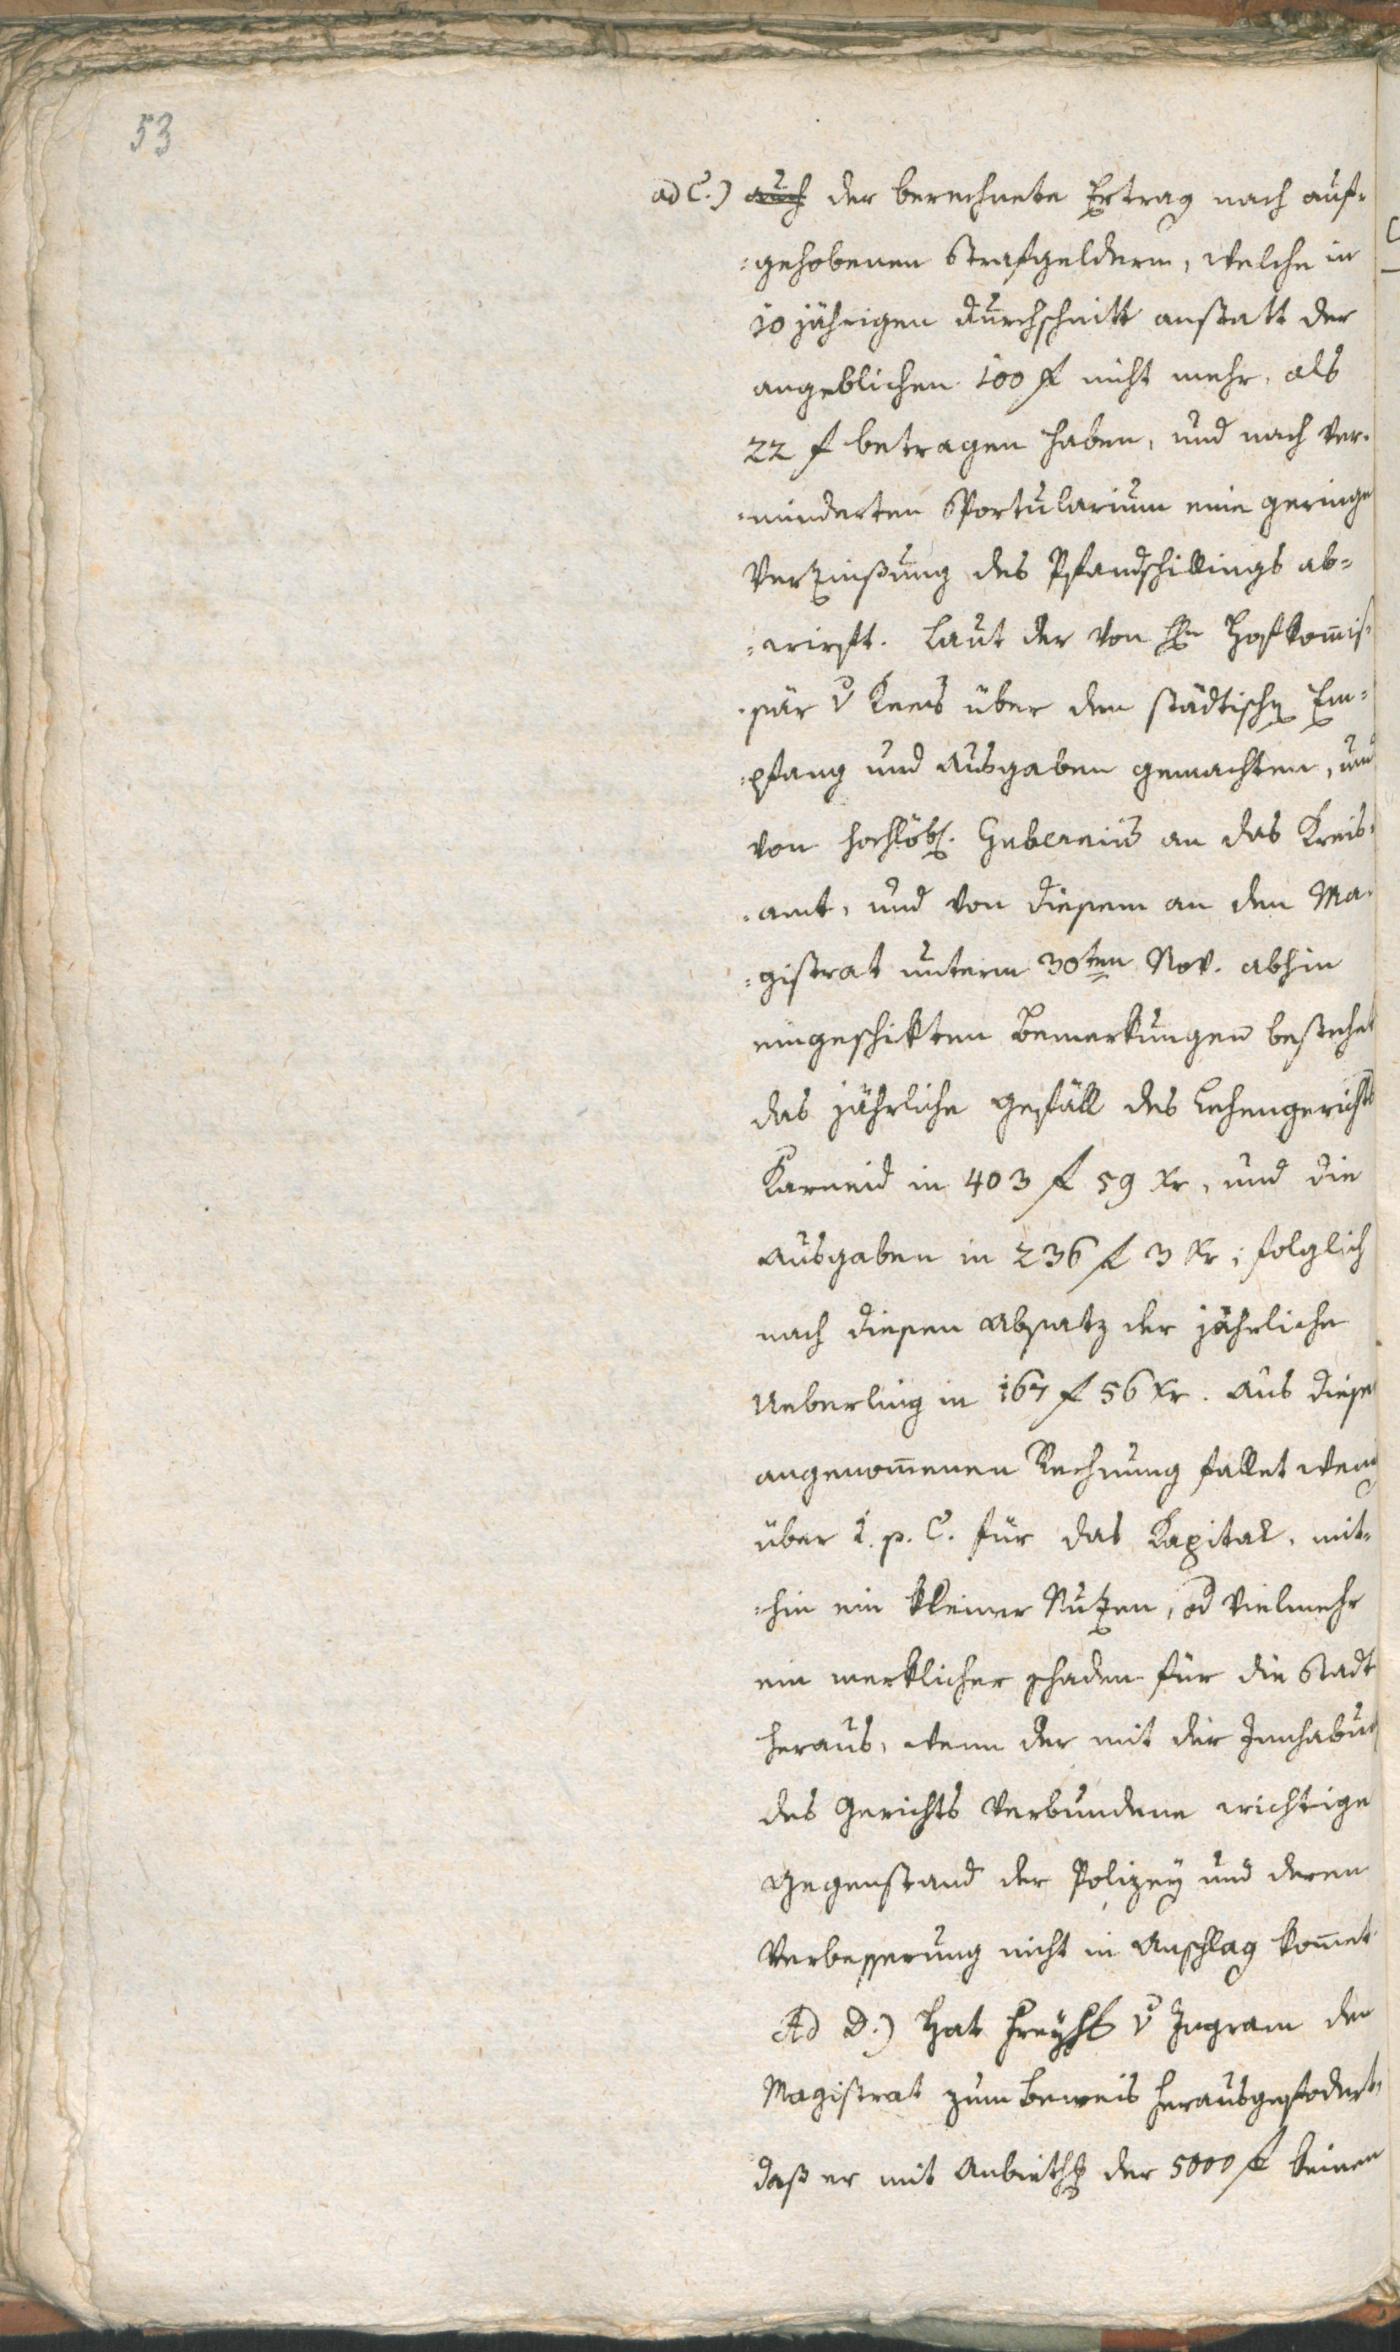 53
ad C.) auch der berechnete Ertrag nach auf¬
¬gehobenen Strafgeldern, welche in
10 jährigen Durchschnitt anstatt der
angeblichen 100 f nicht mehr, als
22 f betragen haben, und nach ver¬
¬minderten Sportularium eine geringe
Verzinßung des Pfandschillings ab¬
¬wirft. Laut der von Hrn Hofkommis¬
¬sär v Kees über den städtischen Em¬
¬pfang und Ausgaben gemachten, und
von hochlöbl. Gubernium an das Kreis¬
¬amt, und von diesem an den Ma¬
¬gistrat unterm 30ten Nov. abhin
eingeschikten Bemerkungen bestehet
das jährliche Gefäll des Lehengerichts
Karneid in 403 f 59 kr, und die
Ausgaben in 236 f 3 kr; folglich
nach diesen Absatz der jährliche
Ueberling in 167 f 56 kr. Aus dieser
angenommenen Rechnung fallet wenig
über 1. p. C. für das Kapital, mit¬
¬hin ein kleiner Nutzen, od vielmehr
ein merklicher schaden für die Stadt
heraus, wenn der mit der Innhabung
des Gerichts verbundene wichtige
Gegenstand der Polizey und deren
Verbesserung nicht in Anschlag kommet
Ad D.) Hat Freyh v Ingram den
Magistrat zum Beweis herausgefodert,
daß er mit Anbiethg der 5000 f keinen